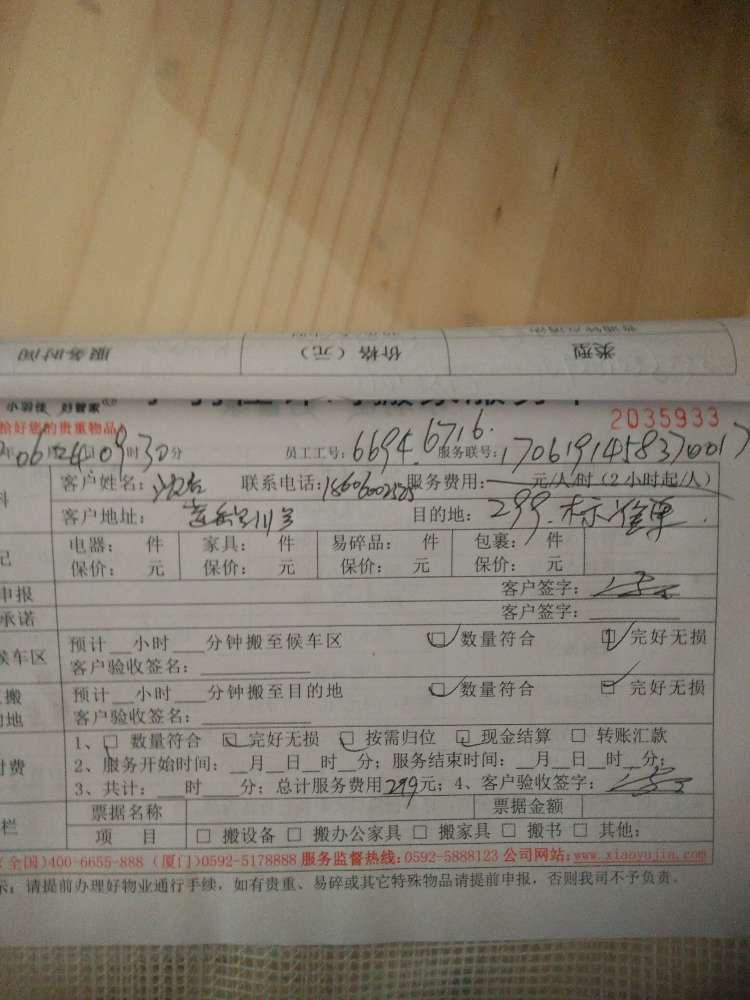 服务时间 价格（元） 类型
小羽佳 好管家®
2035933
拾好您的贵重物品）
年06月24日09时30分 员工工号：6694.6716. 服务联号：1706191458370017
客户姓名： 联系电话：18606002525 服务费用： 元/人/时（2小时起/人）
客户地址： 目的地：299.标准单.
电器： 件 家具： 件 易碎品： 件 包裹： 件
保价： 元 保价： 元 保价： 元 保价： 元
申报 客户签字：
承诺 客户签字：
候车区 预计__小时___分钟搬至候车区 □数量符合 □完好无损
客户验收签名：
搬 预计__小时___分钟搬至目的地 □数量符合 □完好无损
地 客户验收签名：
付费 1、□ 数量符合 □ 完好无损 □ 按需归位 □ 现金结算 □ 转账汇款
2、服务开始时间：__月__日__时__分；服务结束时间：__月__日__时__分；
3、共计：___时___分；总计服务费用299元；4、客户验收签字：
栏 票据名称 票据金额
项 目 □ 搬设备 □ 搬办公家具 □ 搬家具 □ 搬书 □ 其他：
全国)400-6655-888 (厦门)0592-5178888 服务监督热线:0592-5888123 公司网站:www.xiaoyujia.com
示：请提前办理好物业通行手续，如有贵重、易碎或其它特殊物品请提前申报，否则我司不予负责。